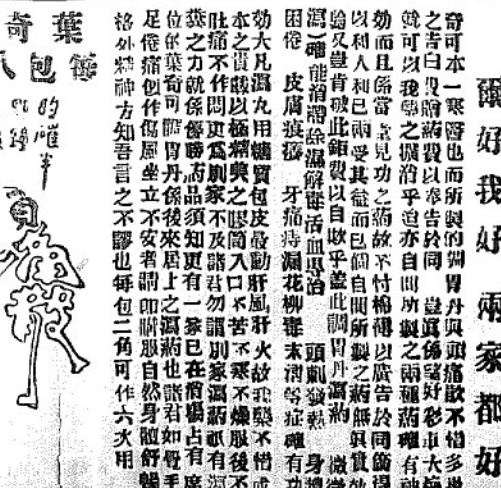 爾好我好兩家都好
奇可本一寒醫也而所製的調胃丹與頭痛散不惜多
之告白以贈藥費以奉告於同　豈眞係好彩車大
就可以我學之擴治乎迫亦自問所製之兩種藥確有神
効而且係當見功之藥故不忖棉薄以廣告於同僑得
以利人利己兩受其益而已個自問所製之藥無眞實效
驗又豈肯破此鉅費以自欺乎盖此調胃丹瀉藥　微微
瀉）確能消滯除濕解毒活血專治　頭刺發熱　身體
困倦　皮膚痕癢　牙痛痔漏花柳毒未清等症確有功
効大凡瀉丸用糖質包皮最動肝風肝火故我藥不惜成
本之貴戲以極精奧之膠筒入口不苦不寒不燥服後不
肚痛不作悶更爲別家不及諸君勿謂別家瀉藥祇有瀉
藥之力就係優勝藥品須知更有一家已在塲占有席
位的葉奇可調胃丹係後來居上之瀉藥也諸君如覺手
足倦痛創作傷風坐立不安者請即購服自然身體舒暢
格外精神方知吾言之不謬也每包二角可作六次用
葉奇
包
的確